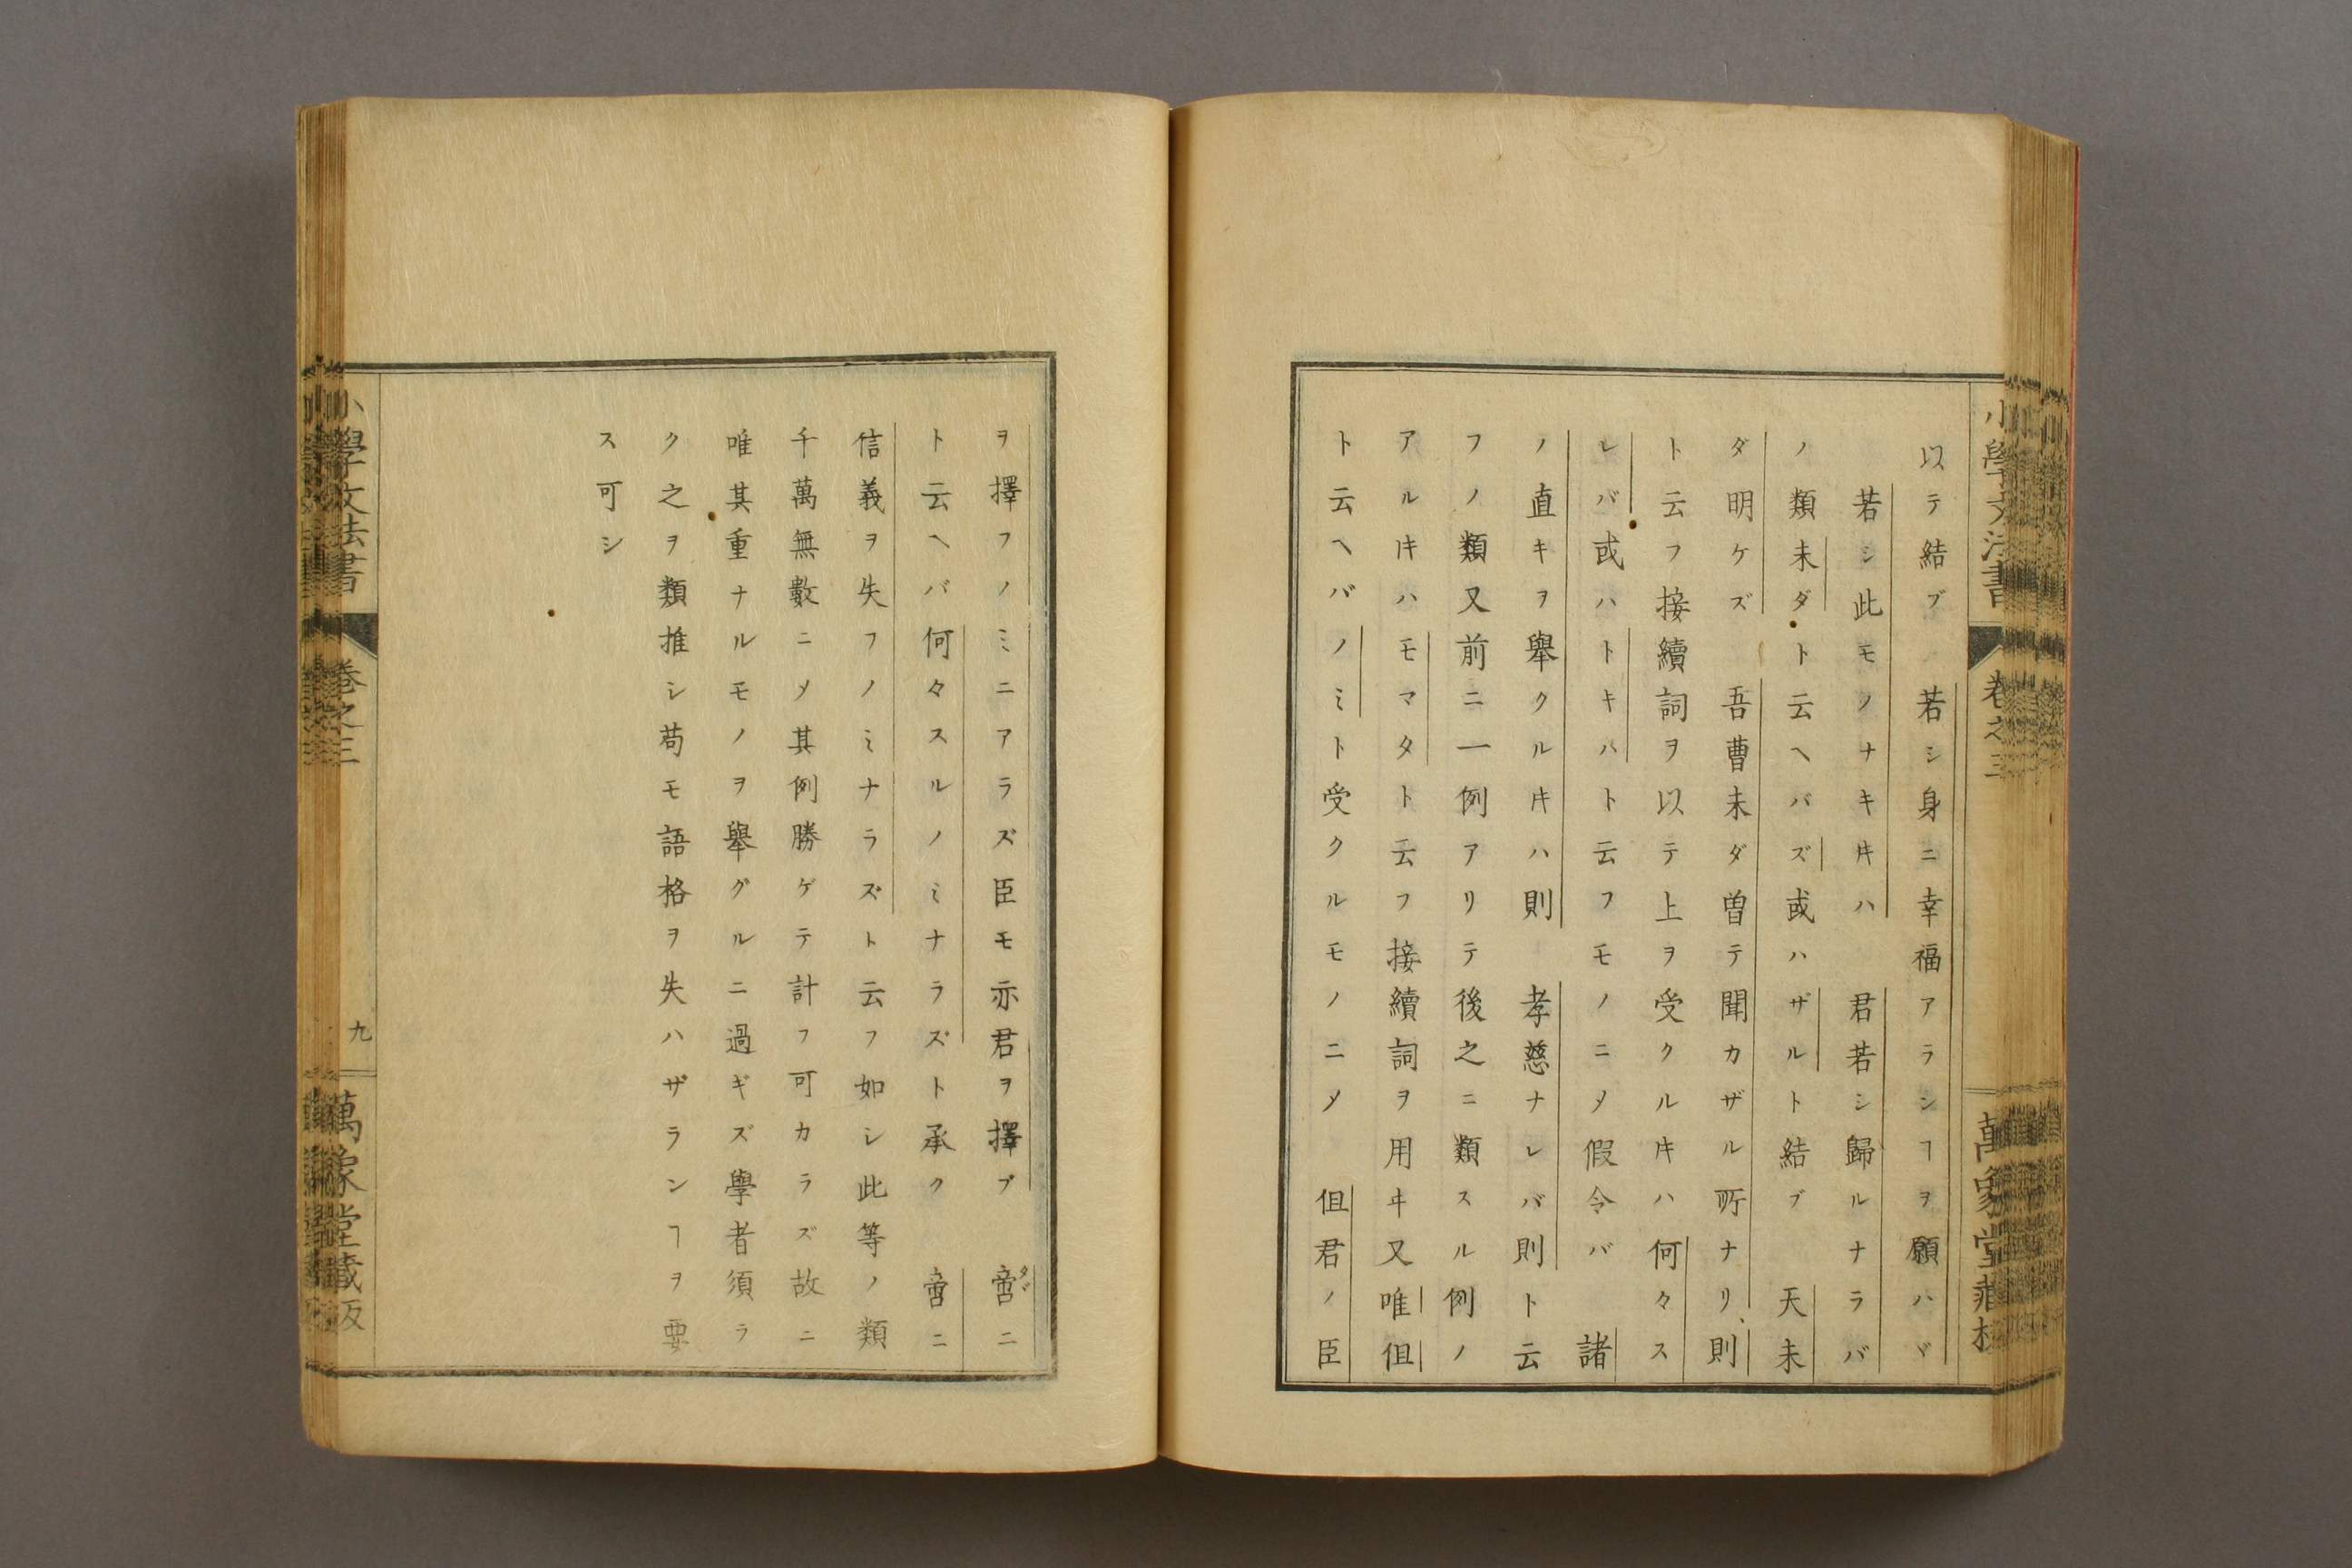 小學文法書
卷之三
萬象堂藏板
以テ結ブ　若シ身ニ幸福アラシヿヲ願ハヾ
若シ此モノナキ𪜈ハ　君若シ歸ルナラバ
ノ類未ダト云ヘバズ或ハザルト結ブ　天未
ダ明ケズ　吾曹未ダ曽テ聞カザル所ナリ則
ト云フ接續詞ヲ以テ上ヲ受クル𪜈ハ何々ス
レバ或ハトキハト云フモノニ〆假令バ　諸
ノ直キヲ舉クル𪜈ハ則　孝慈ナレバ則ト云
フノ類又前ニ一例アリテ後之ニ類スル例ノ
アル𪜈ハモマタト云フ接續詞ヲ用ヰ又唯但
ト云ヘバノミト受クルモノニ〆　但君ノ臣
ヲ擇フノミニアラズ臣モ亦君ヲ擇ブ　啻ニ
タヾ
ト云ヘバ何々スルノミナラズト承ク　啻ニ
信義ヲ失フノミナラズト云フ如シ此等ノ類
千萬無數ニ〆其例勝ゲテ計フ可カラズ故ニ
唯其重ナルモノヲ舉グルニ過ギズ學者須ラ
ク之ヲ類推シ苟モ語格ヲ失ハザランヿヲ要
ス可シ
小學文法書
卷之三
九
萬象堂藏板